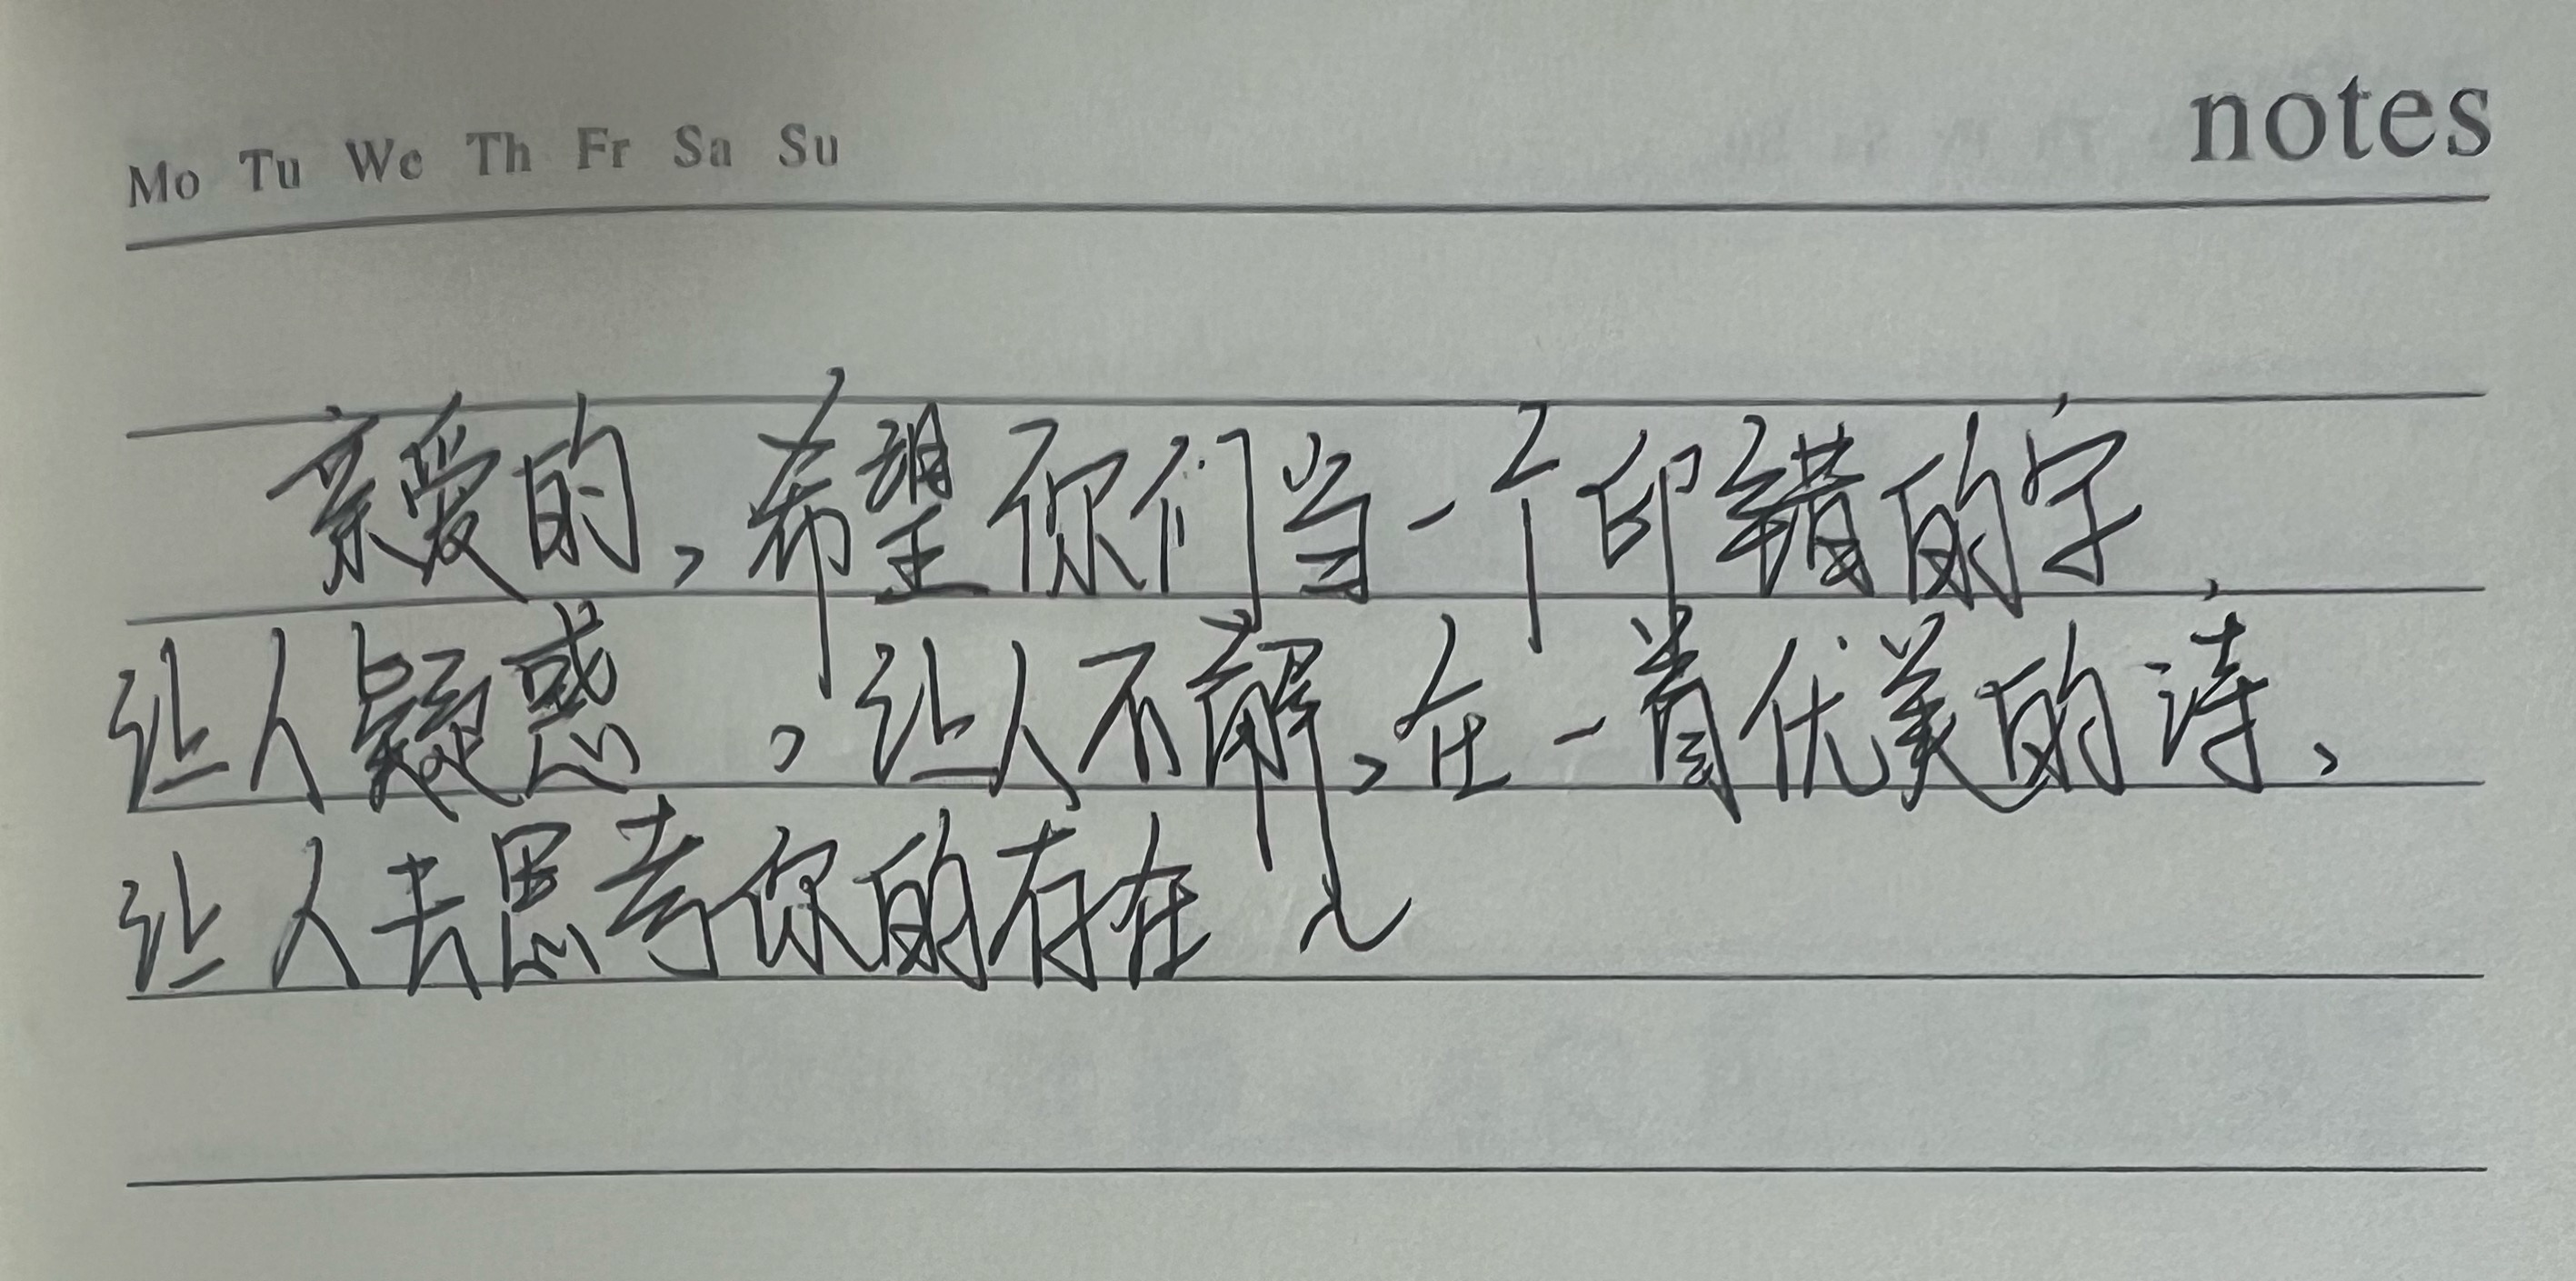 Mo Tu We Th Fr Sa Su
notes
亲爱的，希望你们当一个印错的字，
让人疑惑，让人不解，在一首优美的诗，
让人去思考你的存在